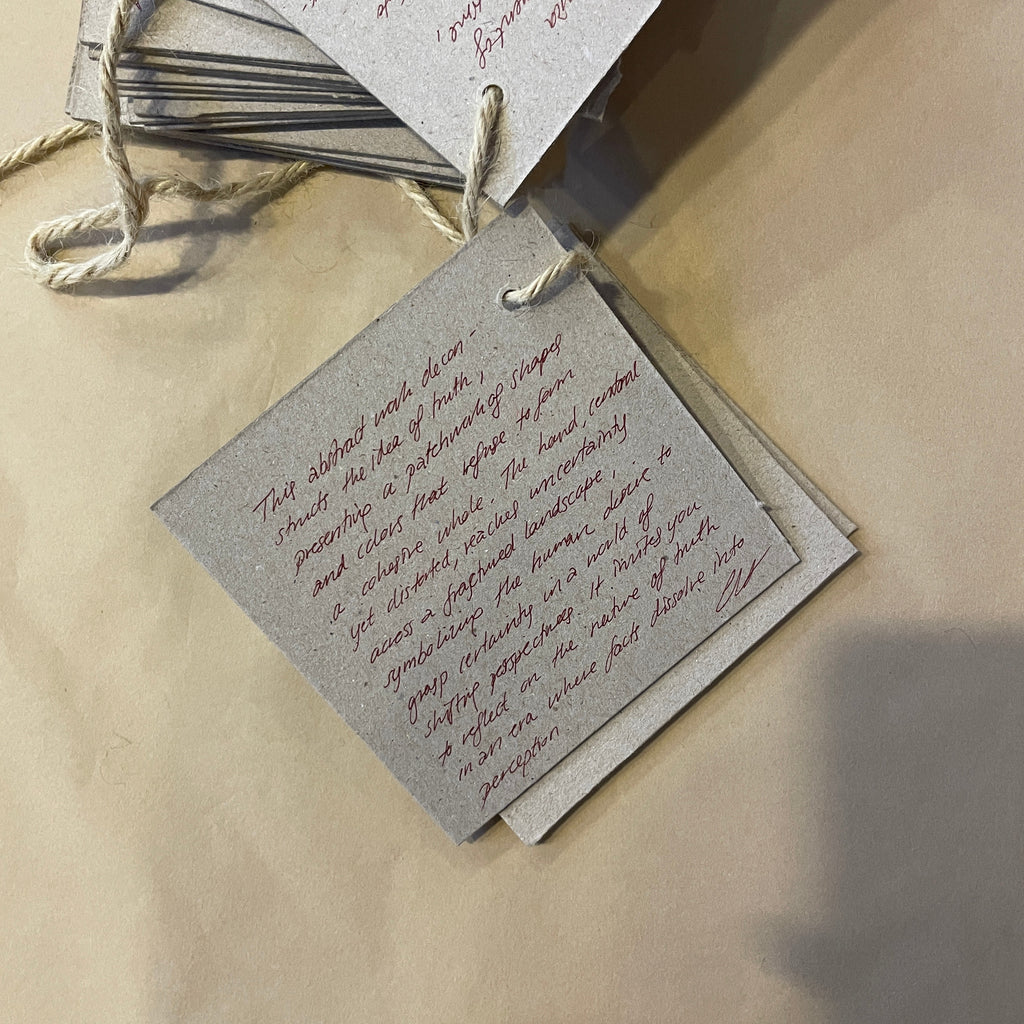 This abstract work decon-
structs the idea of truth,
presenting a patchwork of shapes
and colors that refuse to form
a cohesive whole. The hand, central
yet distorted, reaches uncertainty
across a fractured landscape,
symbolizing the human desire to
grasp certainty in a world of
shifting perspectives. It invites you
to reflect on the native of truth
in an era where facts dissolve into
perception.